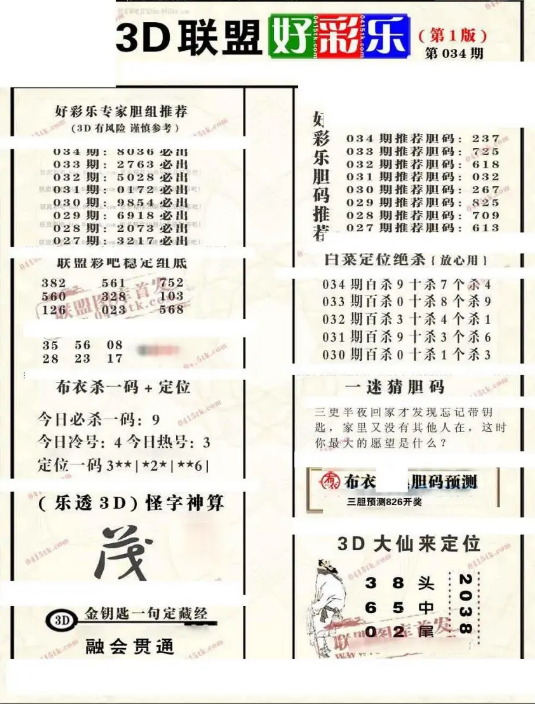 3D联盟好彩乐
(第1版)
第034期
好彩乐专家胆组推荐
(3D有风险 谨慎参考)
034期: 8036必出
033期: 2763必出
032期: 5028必出
031期: 0172必出
030期: 9854必出
029期: 6918必出
028期: 2073必出
027期: 3217必出
联盟彩吧稳定组底
382 561 752
560 328 103
126 023 568
35 56 08
28 23 17
布衣杀一码+定位
今日必杀一码: 9
今日冷号: 4 今日热号: 3
定位一码3**|*2*|**6|
(乐透3D)怪字神算
茂
3D 金钥匙一句定藏经
融会贯通
好彩乐胆码推荐
034期推荐胆码: 237
033期推荐胆码: 725
032期推荐胆码: 618
031期推荐胆码: 032
030期推荐胆码: 267
029期推荐胆码: 825
028期推荐胆码: 709
027期推荐胆码: 613
白菜定位绝杀{放心用}
034期百杀9十杀7个杀4
033期百杀0十杀8个杀9
032期百杀3十杀4个杀1
031期百杀9十杀3个杀6
030期百杀0十杀1个杀3
一迷猜胆码
三更半夜回家才发现忘记带钥
匙,家里又没有其他人在,这时
你最大的愿望是什么?
布衣 胆码预测
三胆预测826开奖
3D大仙来定位
3 8 头
6 5 中
0 2 尾
2038
联盟图库首发
0415tk.com